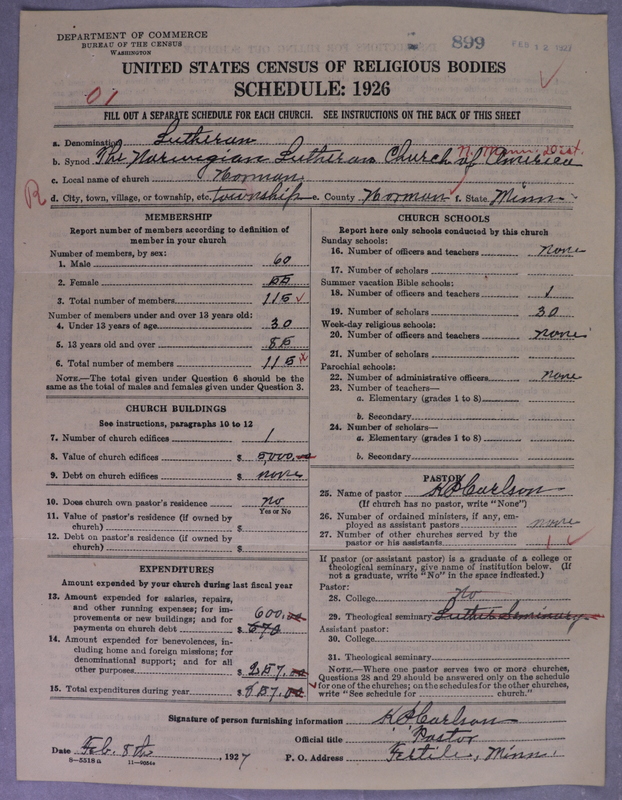 DEPARTMENT OF COMMERCE
BUREAU OF THE CENSUS
WASHINGTON
899
FEB 12 1927
UNITED STATES CENSUS OF RELIGIOUS BODIES
SCHEDULE: 1926
01
FILL OUT A SEPARATE SCHEDULE FOR EACH CHURCH. SEE INSTRUCTIONS ON THE BACK OF THIS SHEET
a. Denomination Lutheran
N. Minn. Dist.
b. Synod The Norwegian Lutheran Church of America
c. Local name of church Norman
R
d. City, town, village, or township, etc. township e. County Norman f. State Minn
MEMBERSHIP
Report number of members according to definition of
member in your church
Number of members, by sex:
1. Male 60
2. Female 55
3. Total number of members 115
Number of members under and over 13 years old:
4. Under 13 years of age 30
5. 13 years old and over 85
6. Total number of members 115
NOTE.—The total given under Question 6 should be the
same as the total of males and females given under Question 3.
CHURCH BUILDINGS
See instructions, paragraphs 10 to 12
7. Number of church edifices 1
8. Value of church edifices $ 5,000.00
9. Debt on church edifices $ none
10. Does church own pastor's residence no
Yes or No
11. Value of pastor's residence (if owned by
church) $
12. Debt on pastor's residence (if owned by
church) $
EXPENDITURES
Amount expended by your church during last fiscal year
13. Amount expended for salaries, repairs,
and other running expenses; for im-
provements or new buildings; and for 600.00
payments on church debt $ 570
14. Amount expended for benevolences, in-
cluding home and foreign missions; for
denominational support; and for all
other purposes $ 257.00
15. Total expenditures during year $ 857.00
CHURCH SCHOOLS
Report here only schools conducted by this church
Sunday schools:
16. Number of officers and teachers none
17. Number of scholars
Summer vacation Bible schools:
18. Number of officers and teachers 1
19. Number of scholars 30
Week-day religious schools:
20. Number of officers and teachers none
21. Number of scholars
Parochial schools:
22. Number of administrative officers none
23. Number of teachers—
a. Elementary (grades 1 to 8)
b. Secondary
24. Number of scholars—
a. Elementary (grades 1 to 8)
b. Secondary
PASTOR
25. Name of pastor Carlson
(If church has no pastor, write "None")
26. Number of ordained ministers, if any, em-
ployed as assistant pastors none
27. Number of other churches served by the
pastor or his assistants 1
If pastor (or assistant pastor) is a graduate of a college or
theological seminary, give name of institution below. (If
not a graduate, write "No" in the space indicated.)
Pastor:
28. College no
29. Theological seminary Luther Seminary
Assistant pastor:
30. College
31. Theological seminary
NOTE.—Where one pastor serves two or more churches,
Questions 28 and 29 should be answered only on the schedule
for one of the churches; on the schedules for the other churches,
write "See schedule for church."
Signature of person furnishing information Carlson
Official title Pastor
Date Feb. 8th, 1927 P. O. Address Fertile, Minn.
8—5518 a 11—9054a